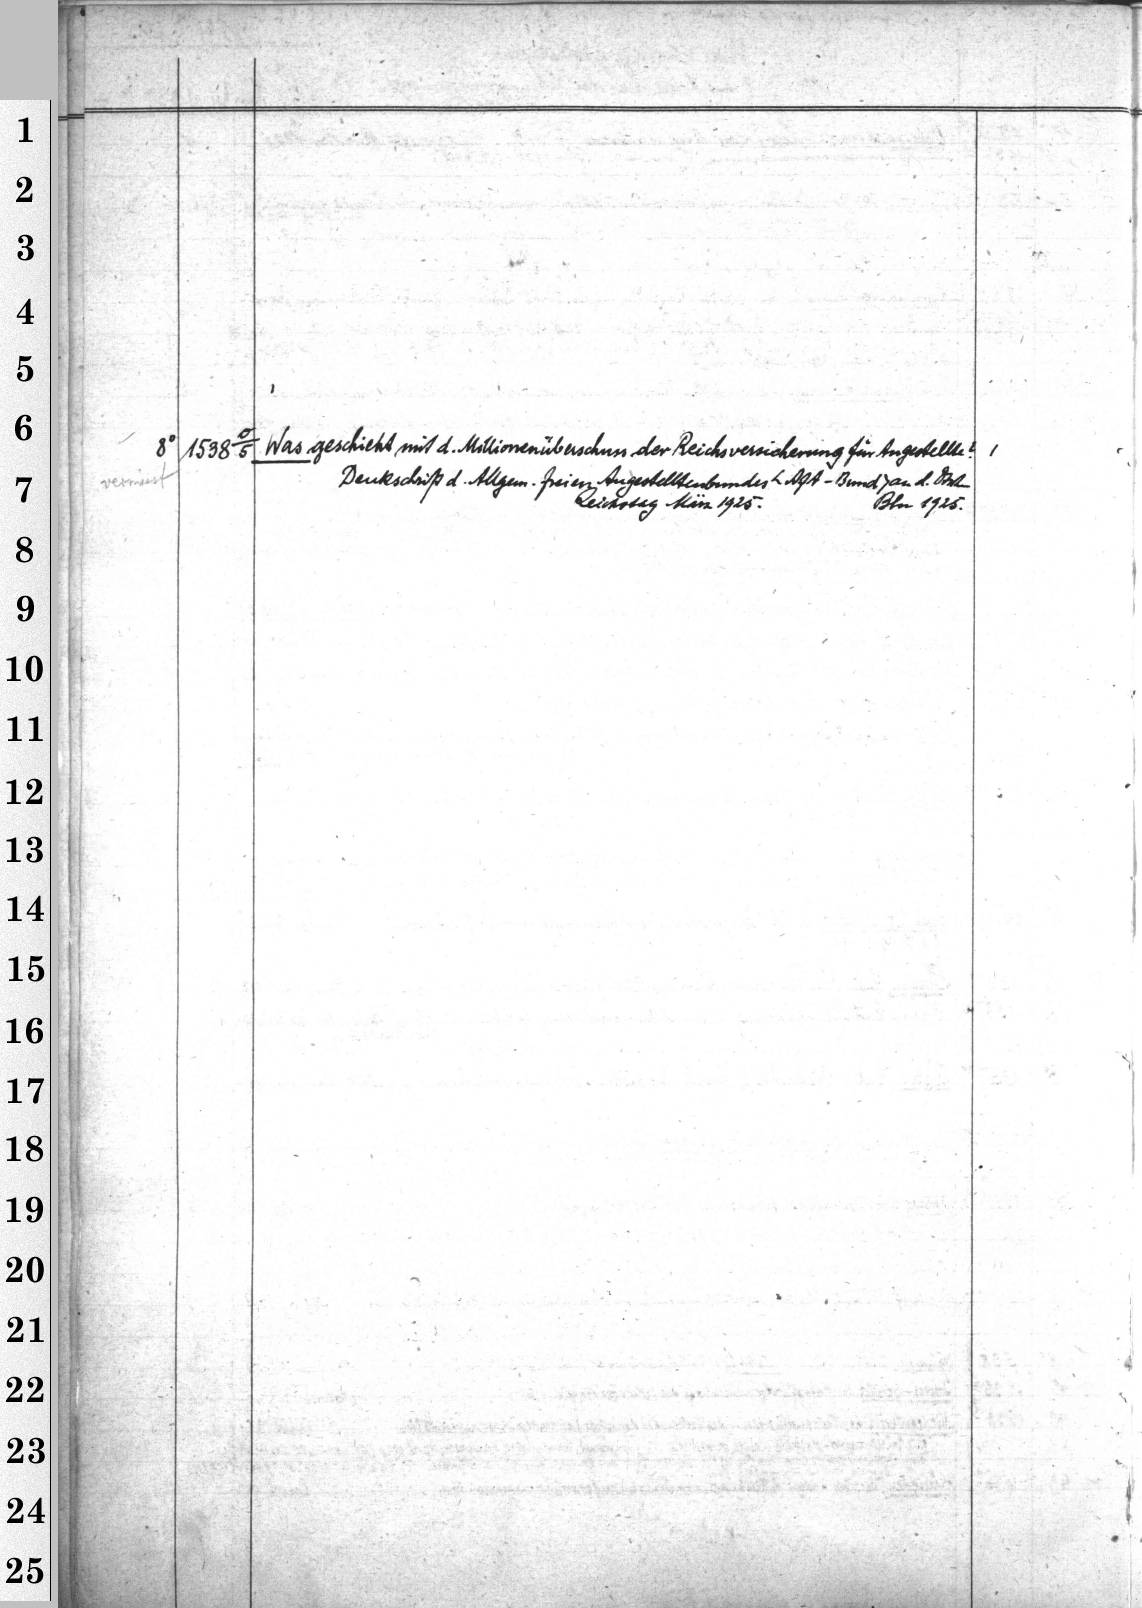 1
2
3
4
5
6
7
8
9
10
11
12
13
14
15
16
17
18
19
20
21
22
23
24
25
8° 1538 5/5 Was geschieht mit d. Millionenüberschuss der Reichsversicherung für Angestellte? 1
vermisst Denkschrift d. Allgem. freien Angestelltenbundes (AfA-Bund) an d. Dtsch
Reichstag März 1925. Bln 1925.